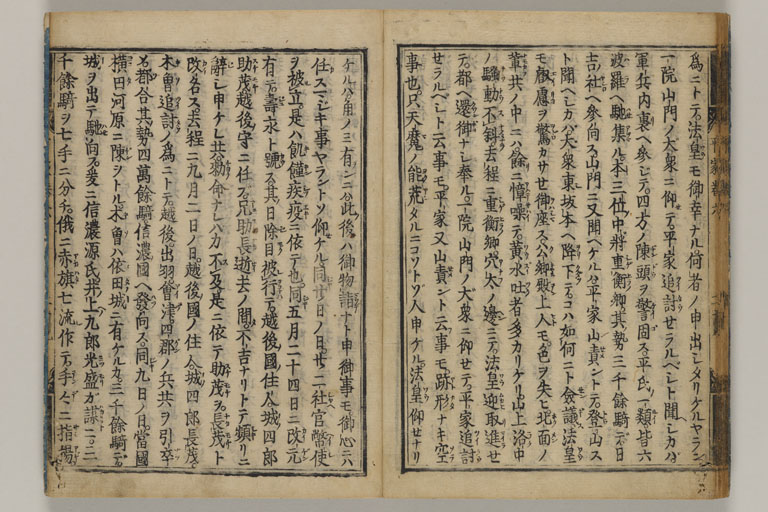 為ニトテ法皇モ御幸ナル何者ノ申出シタリケルヤラン
一院山門ノ大衆ニ仰テ平家追討セラルヘシト聞ヘシカハ
軍兵内裏ヘ参シテ四方ノ陳頭ヲ警固ス平氏ノ一類皆六
波羅ヘ馳集ル本三位中将重衡卿其勢三千餘騎ニテ日
吉社ヘ参向ス山門ニ又聞ヘケルハ平家山責ントテ登山ス
ト聞ヘシカハ大衆東坂本ヘ降下テコハ如何ニト僉議法皇
モ叡慮ヲ驚カサセ御座ス公卿殿上人モ色ヲ失ヒ北面ノ
輩共ノ中ニハ餘ニ憧噪テ黄水吐者多カリケリ山上洛中
ノ騒動不斜去程ニ重衡卿穴太ノ邊ニテ法皇迎取進セ
テ都ヘ還御ナシ奉ル一院山門ノ大衆ニ仰セテ平家追討
セラルヘシト云事モ平家又山責ント云事モ跡形ナキ空
事也只天魔ノ能荒タルニコソトソ人申ケル法皇仰セナリ
ケルハ角ノミ有ンニハ此後ハ御物詣ナト申御事モ御心ニハ
任スマシキ事ヤラントソ仰ケル同廿日ノ日廿二社官幣使
ヲ被立是ハ飢饉疾疫ニ依テ也同五月二十四日ニ改元
有テ壽永ト號ス其日除目被行テ越後國住人城四郎
助茂越後守ニ任ス兄助長逝去ノ間不吉ナリトテ頻リニ
辞シ申ケレ共勅命ナレハ力不及是ニ依テ助茂ヲ長茂ト
改名ス去程ニ九月二日ノ日越後國ノ住人城四郎長茂
木曽追討ノ為ニトテ越後出羽會津四郡ノ兵共ヲ引卒
シ都合其勢四萬餘騎信濃國ヘ發向ス同九日ノ日當國
横田河原ニ陳ヲトル木曽ハ依田城ニ有ケルカ三千餘騎テ
城ヲ出テ馳向ス爰ニ信濃源氏井上九郎光盛カ謀ニ三
千餘騎ヲ七手ニ分チ俄ニ赤旗七流作テ手々ニ指揚